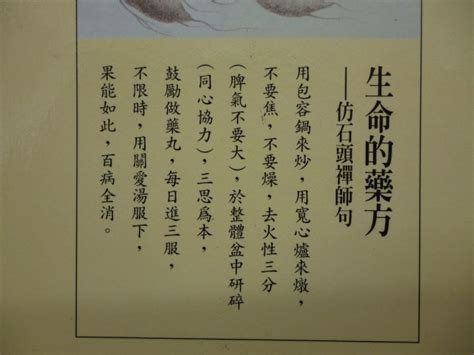 生命的藥方
——仿石頭禪師句
用包容鍋來炒，用寬心爐來燉，
不要焦，不要燥，去火性三分
（脾氣不要大），於整體盆中研碎
（同心協力），三思為本，
鼓勵做藥丸，每日進三服，
不限時，用關愛湯服下，
果能如此，百病全消。